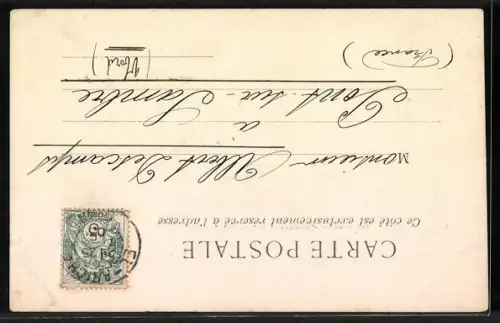 CARTE POSTALE
Ce côté est exclusivement réservé à l'adresse
Monsieur Albert Descamps
à
Pont-sur-Sambre
(Nord)
(France)
05